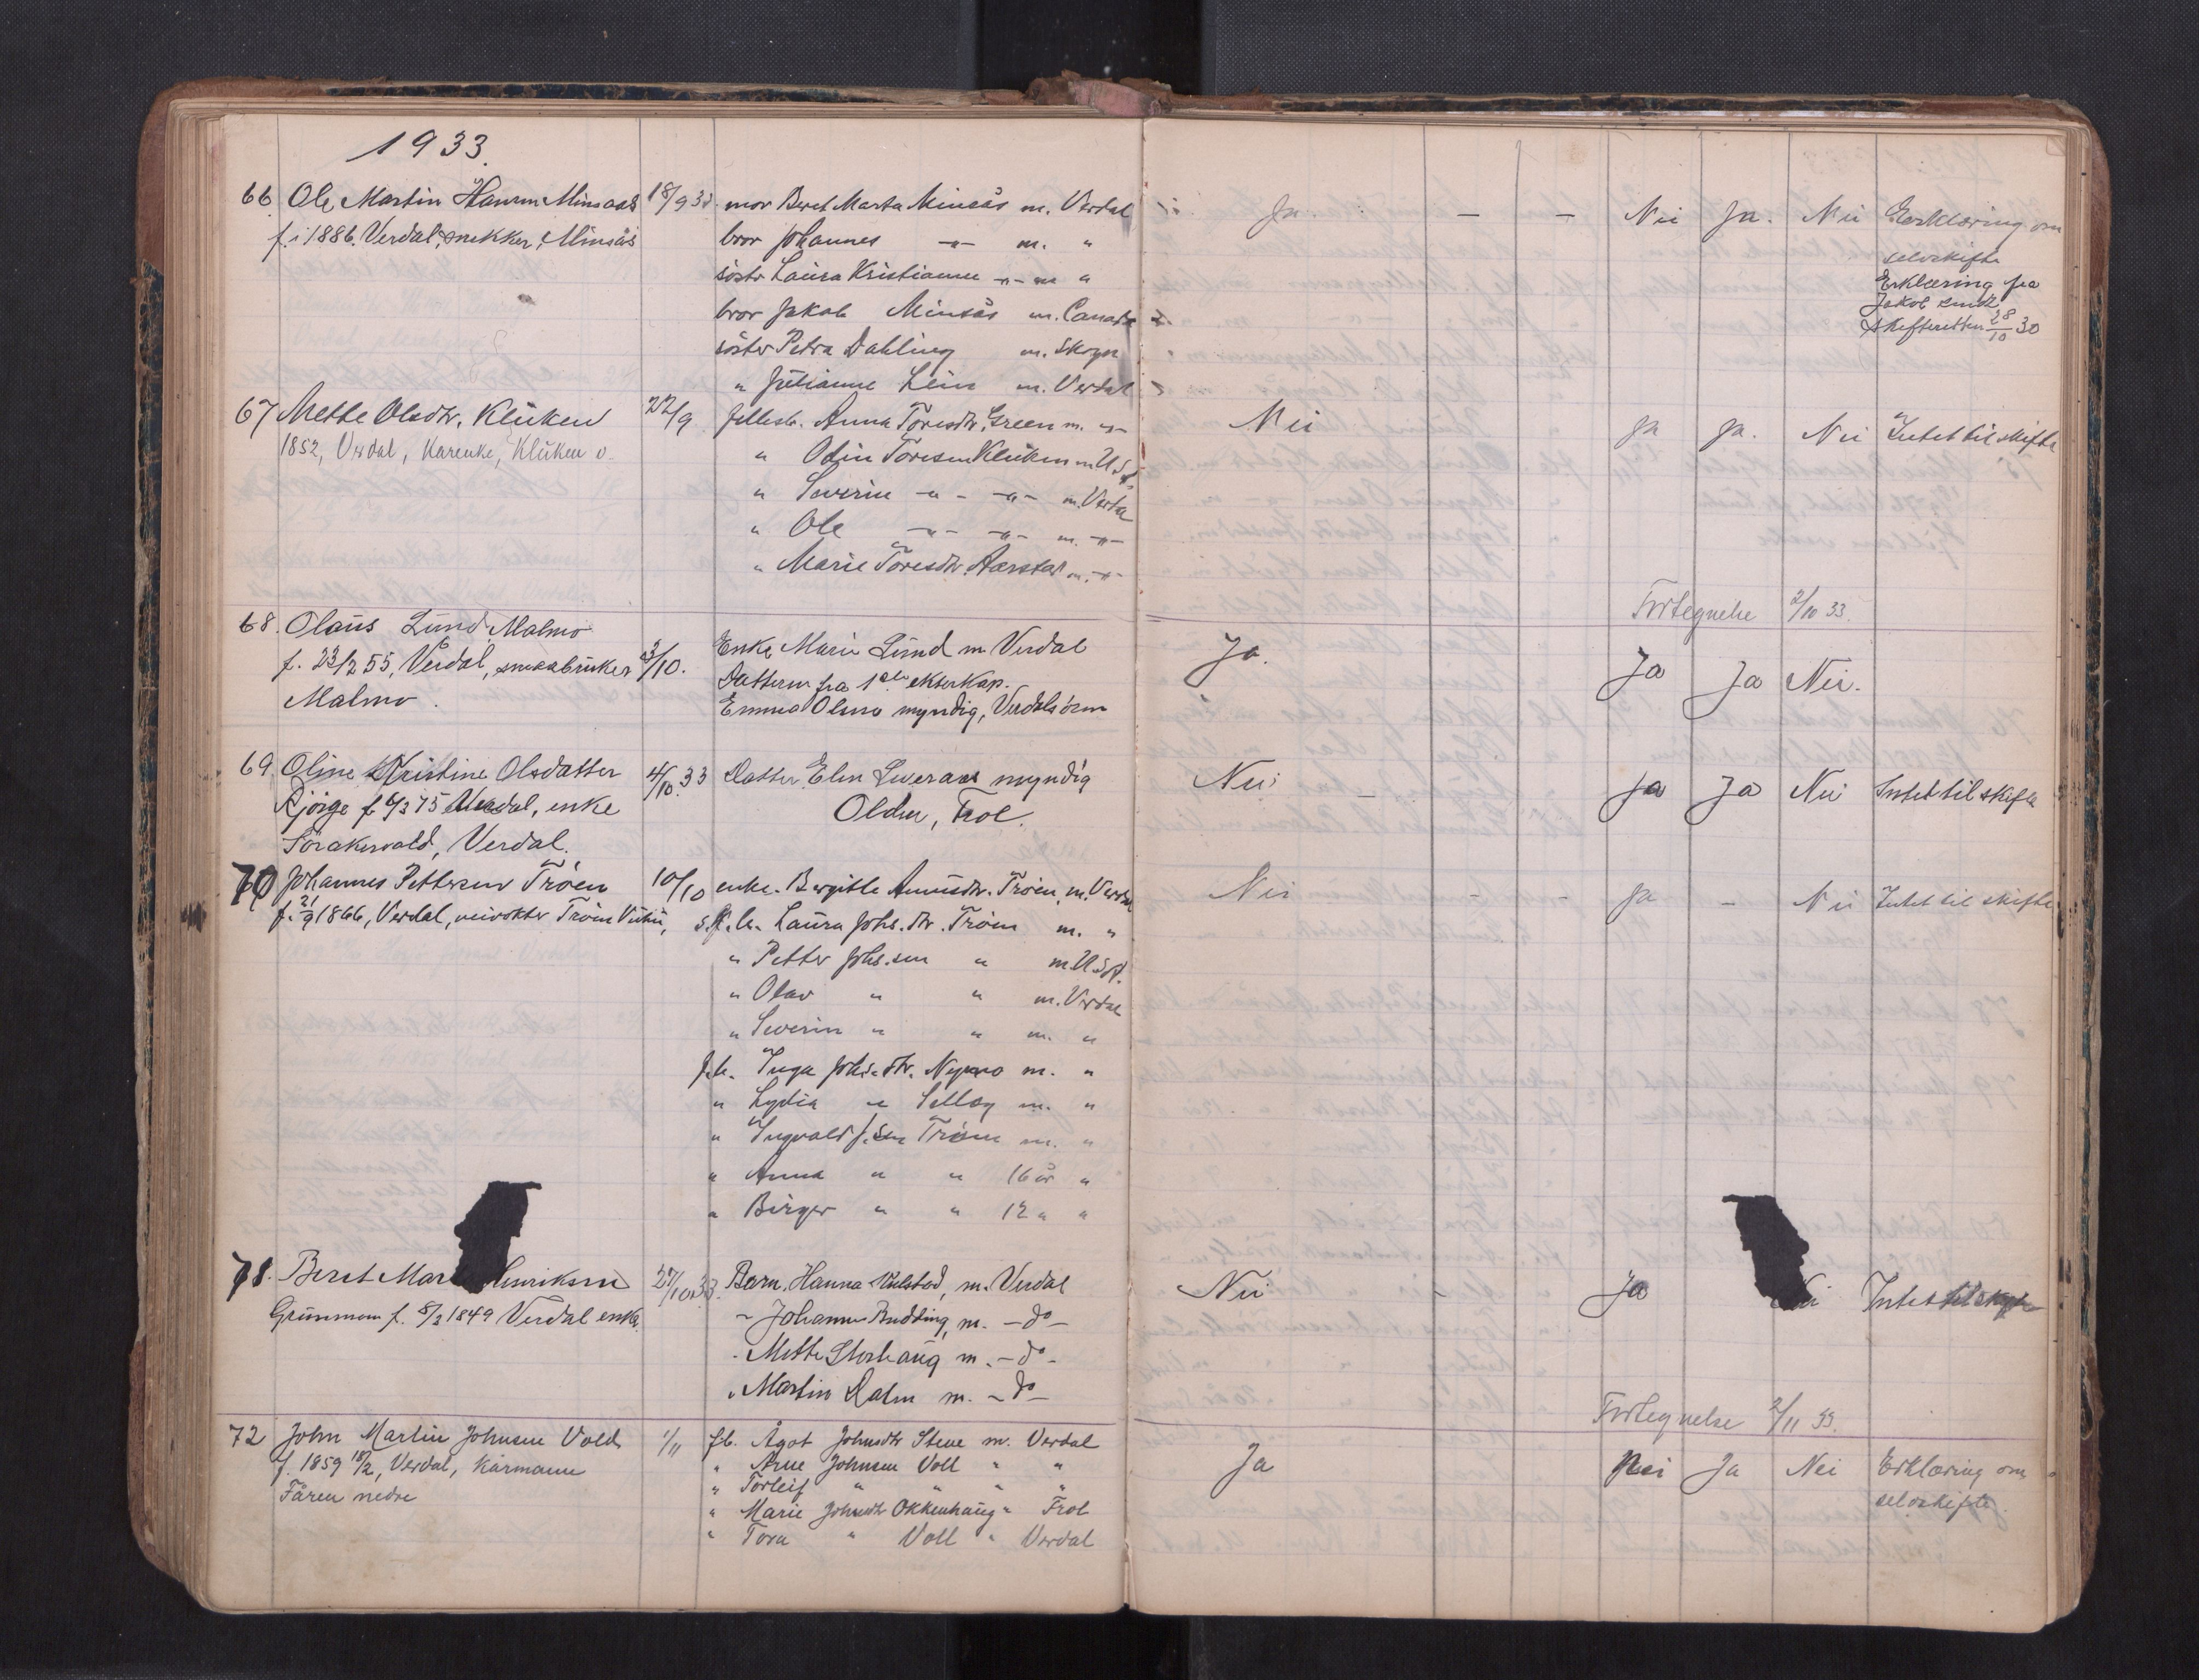 1933.
66 Ole Martin Hansen Minsaas 18/9 33. mor Beret Marta Minsås m. Verdal Ja. — — Nei Ja. Nei Erklæring om
f. i 1886. Verdal, snekker, Minsås bror Johannes -"- m. " selvskifte
søster Laura Kristianne -"- m "
Erklæring fra
bror Jakob Minsås m. Canada Jakob sendt
skifteretten 28/10 30
søster Petra Dahling m. Skogn
" Julianne Lein m. Verdal
67 Mette Olsdtr. Klüken 22/9 fellesb. Anna Toresdtr. Green m. -"- Nei Ja Ja. Nei Intet til skifte
1852, Verdal, Karenke, Klüken v.
" Odin Toresen Klüken m. USA.
" Severin -"- -"- m. Verdal
" Ole -"- -"- m. -"-
" Marie Toresdtr. Aarstad m. -"-
Fortegnelse 2/10 33.
68. Olaus Lund, Malmo
f. 23/2 55, Verdal, smaabruker 3/10. Enke Marie Lund m Verdal Ja. Ja Ja Nei.
Malmo. Datteren fra 1ste ekteskap.
Emma Olsno myndig, Verdalsøren
69. Oline Kristine Olsdatter 4/10.33 Datter Elen Sveraas myndig Nei — Ja Ja Nei Intet til skifte
f. 6/3 75 Verdal, enke Olden, Frol.
Sørakervald, Verdal.
70 Johannes Pettersen Trøen 10/10 enke. Bergitte Trøen, m. Verdal Nei - - Ja - Nei Intet til skifte
f. 21/9 1866, Verdal, veivokter Trøen s.f.b. Laura Johs.dtr. Trøen m. "
" Petter Johs.sen " m. USA.
" Olav " " m. Verdal
" Severin " " m. "
f.b. Inga Johs.dtr. Nymo m. "
" Lydia " m. "
" Ingvald J.sen Trøen m. "
" Anna " " 16 år "
" Birger " " 12 " "
71. Beret Mar Henriksen 27/10.33. Barn, Hanna Kulstad, m. Verdal Nei - Ja Nei Intet til skifte
f. 8/3 1849 Verdal enke. " Johannes Budding, m. - do -
" Mette Storhaug m. - do -
" Martin Dalen m. - do -
Fortegnelse 2/11 33.
72 John Martin Johnsen Vold 1/11 fb. Ågot Johnsdtr Stene m. Verdal Ja Nei Ja Nei Erklæring om
f. 1859 18/2, Verdal, Kårmann " Arne Johnsen Voll " " selvskifte.
Fåren nedre " Torleif " " " "
" Marie Johnsdtr Okkenhaug " Frol
" Tora " Voll " Verdal